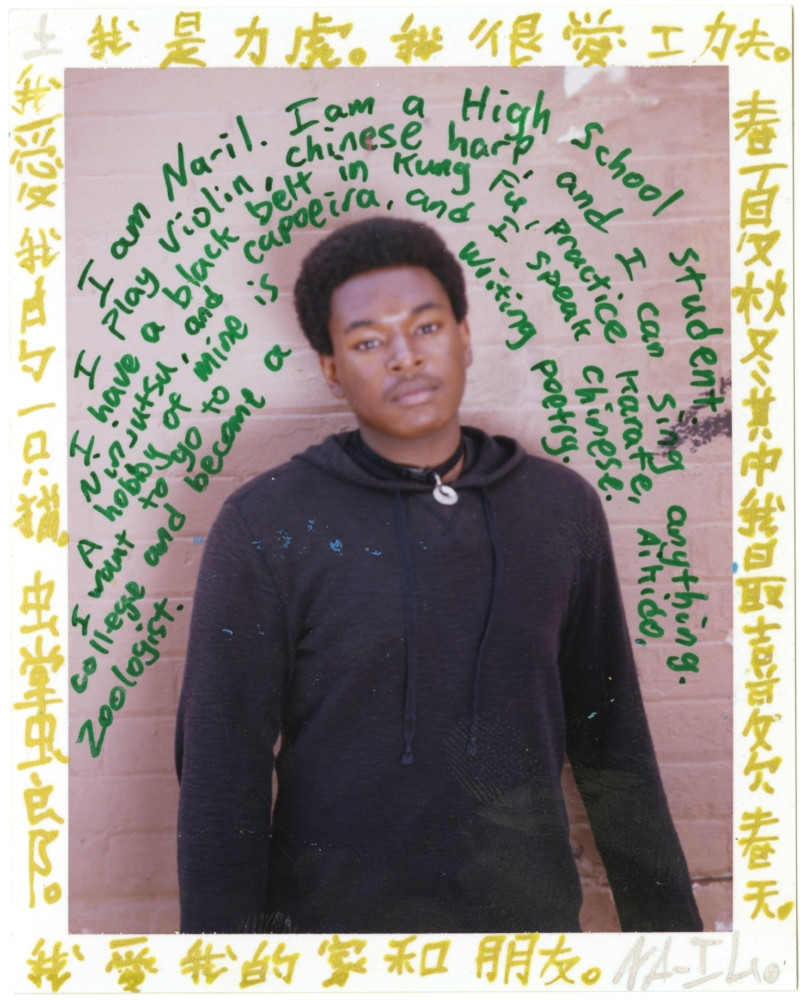 我是力虎。我很愛工力夫。
I am Na-il. I am a High School student.
I play violin, chinese harp, and I can sing anything.
I have a black belt in Kung Fu, practice Karate, Aikido,
Ninjutsu, and capoeira, and I speak Chinese.
A hobby of mine is writing poetry.
I want to go to
college and become a
Zoologist.
春夏秋冬其中我最喜欢春天。
我愛我的一只猫。螳螂。
我愛我的家和朋友。
NA-IL。